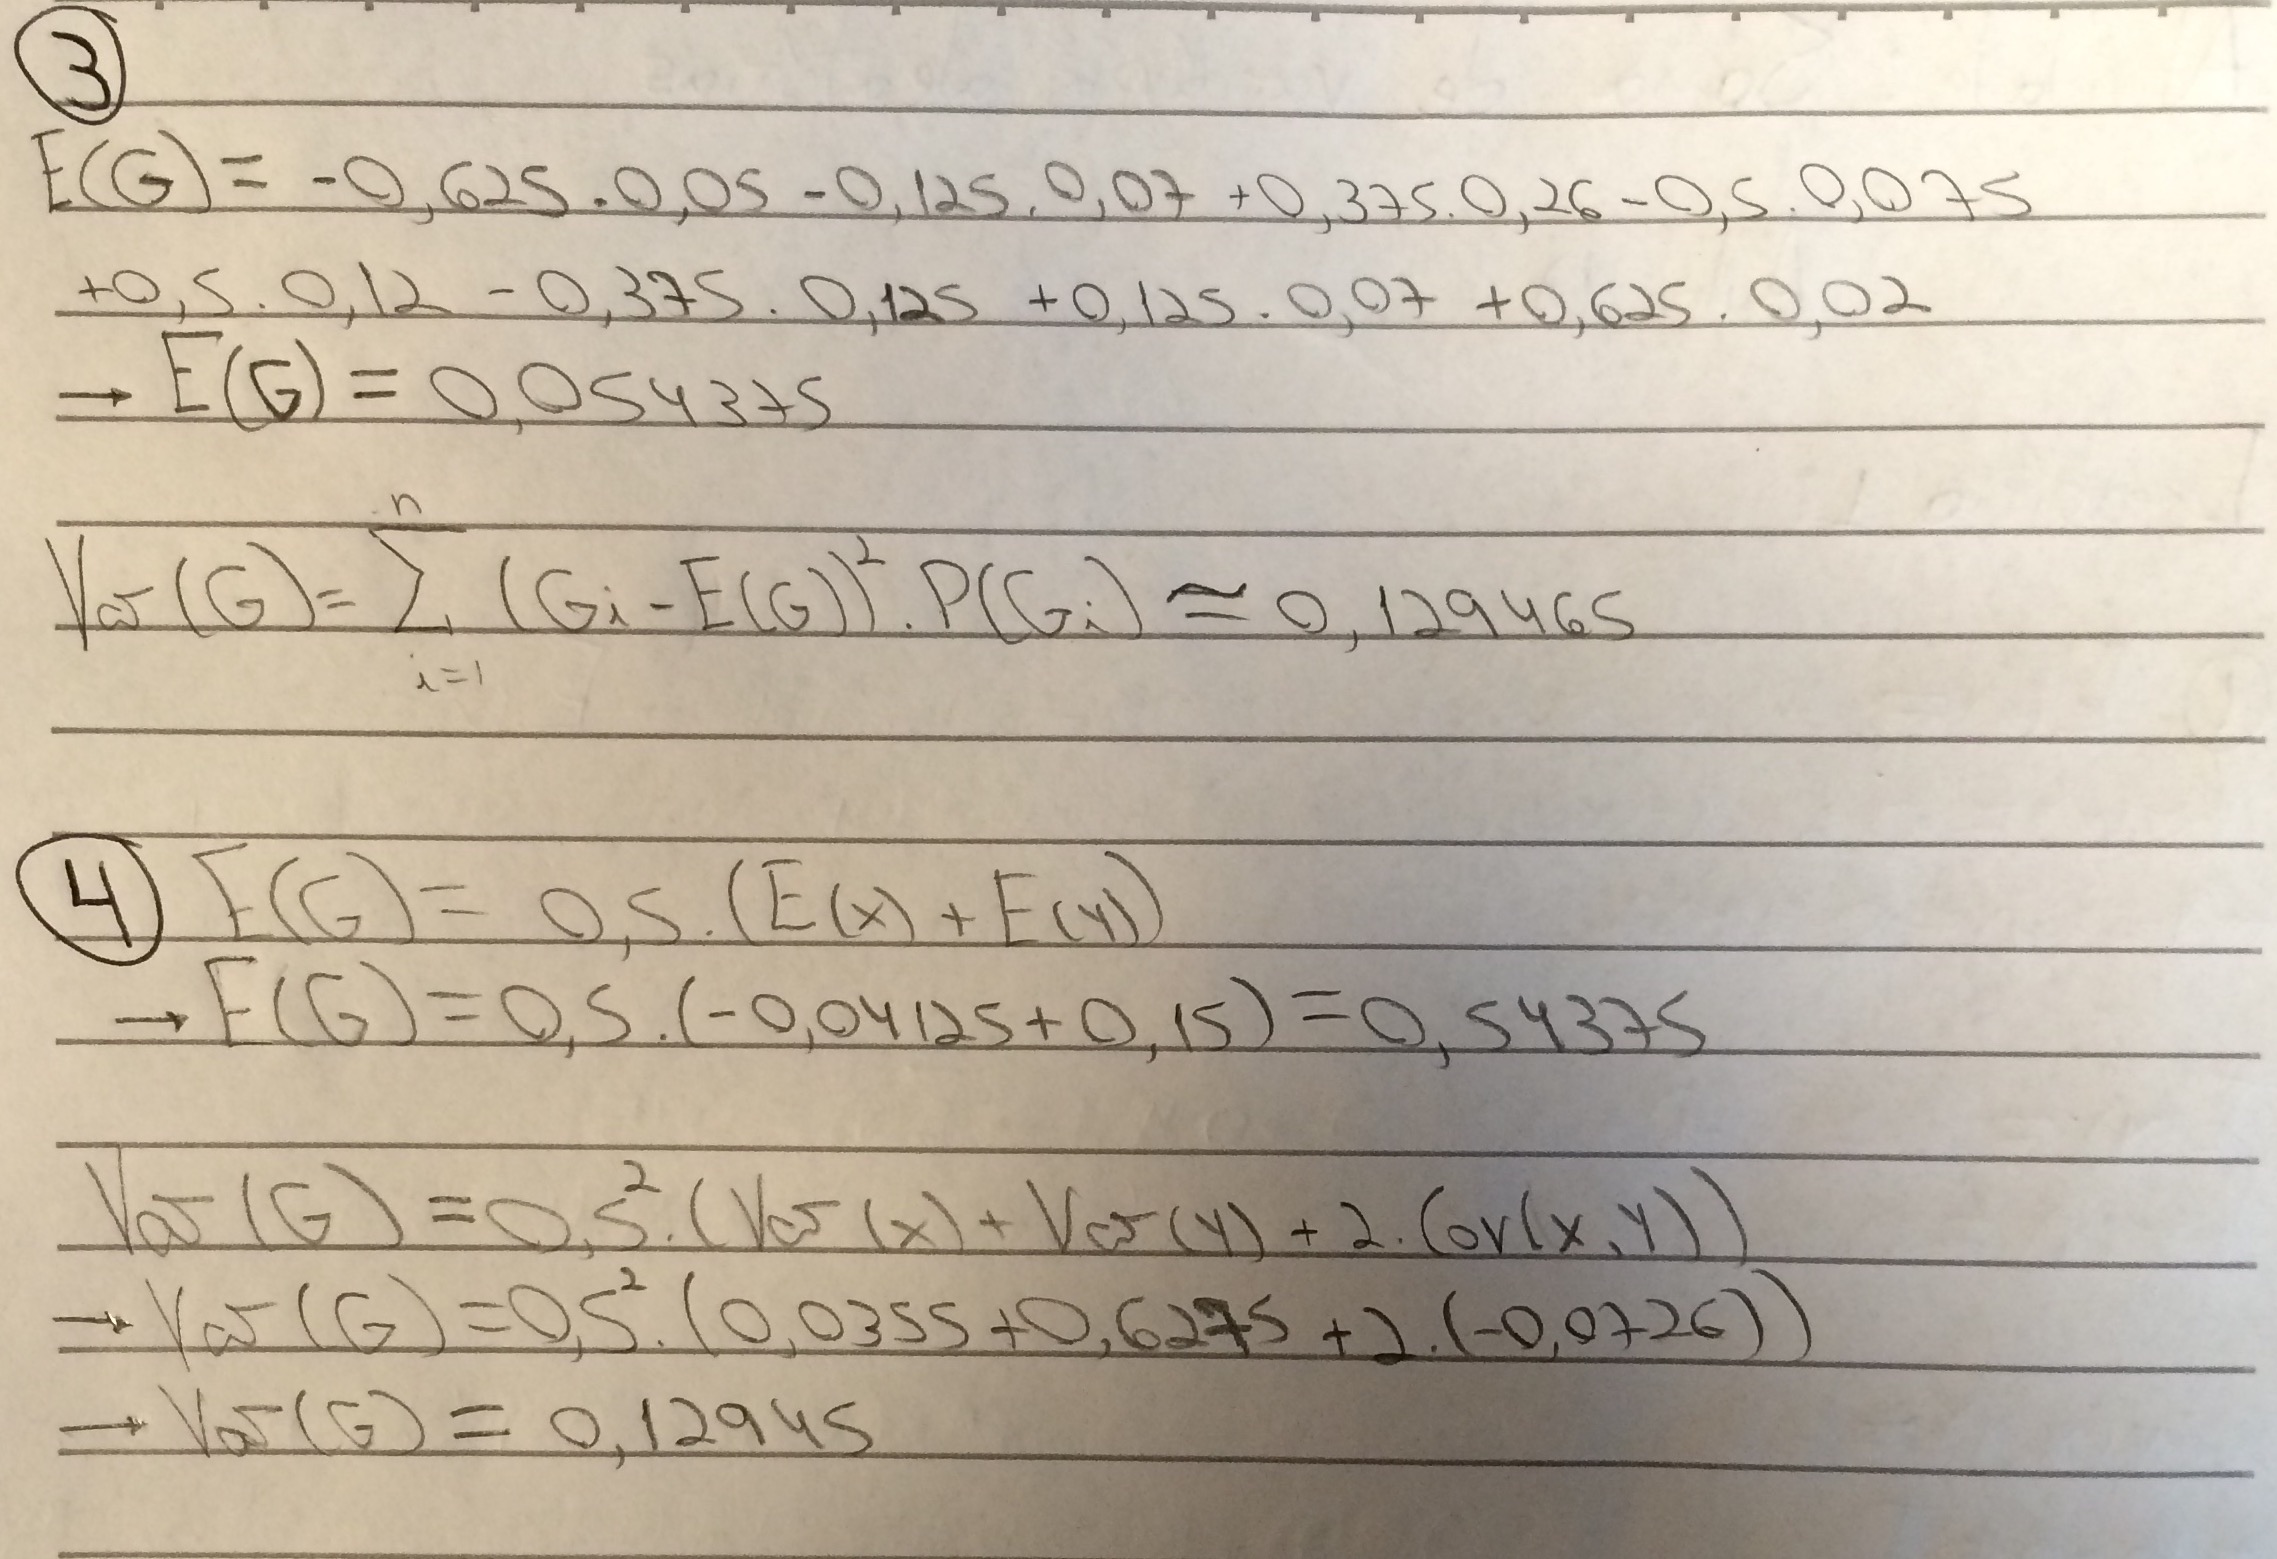 3
E(G) = -0,625.0,05 -0,125.0,07 +0,375.0,26 -0,5.0,075
+0,5.0,12 -0,375.0,125 +0,125.0,07 +0,625.0,02
→ E(G) = 0,054375
n
Var(G) = Σ (Gi - E(G))². P(Gi) ≃ 0,129465
i=1
4 E(G) = 0,5.(E(x) + E(y))
→ E(G) = 0,5.(-0,04125 + 0,15) = 0,54375
Var(G) = 0,5².(Var(x) + Var(y) + 2.Cov(x,y))
→ Var(G) = 0,5².(0,0355 + 0,6275 + 2.(-0,0726))
→ Var(G) = 0,12945